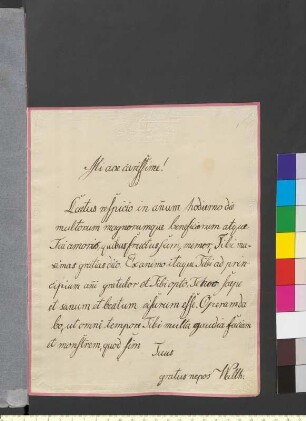 Mi ave carissime!
Laetus respicio in annum hodierno die
multorum magnorumque beneficiorum atque
Tui amoris, quibus fructus sum, memor, Tibi ma-
ximas gratias ago. Ex animo itaque Tibi ad prin-
cipium anni gratulor et Tibi opto, Te hoc saepe
et sanum et beatum
Operam da-
bo, ut omni tempore Tibi multa gaudia faciam
et monstrem, quod sim
Tuus
gratus nepos Walth.